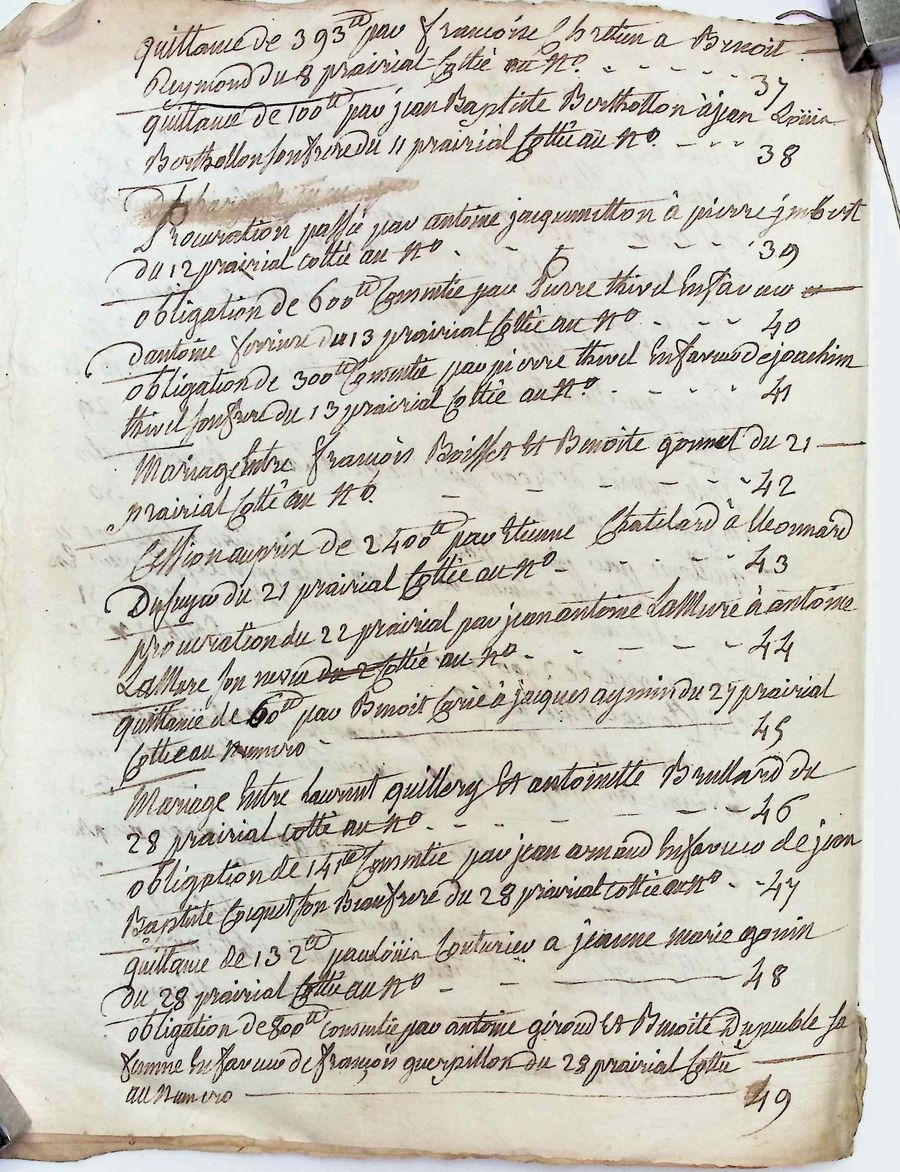 quittance de 393tt par françoise Chretien a Benoit
Reymond du 8 prairial Cottée au N° 37
quittance de 100tt par jean Baptiste Berthollon à jean Loüis
Berthollon son frere du 11 prairial Cottée au N° 38
Procuration passée par antoine jacquemetton à pierre jmbert
du 12 prairial cottée au N° 39
obligation de 600tt Consentie par Pierre thivel En faveur
dantoine du 13 prairial Cottée au N° 40
obligation de 300tt Consentie par pierre thivel En faveur de joachim
thivel son frere du 13 prairial Cottée au N° 41
Mariage Entre françois Boisset Et Benoite gonnet du 21
prairial Cotté au N° 42
Cession au prix de 2400tt par Etienne Chatelard à Leonnard
du 21 prairial Cottée au N° 43
procuration du 22 prairial par jean antoine LaMure à antoine
LaMure son neveu du 2 Cottée au N° 44
quittance de 60tt par Benoit à jacques aymin du 27 prairial
Cottée au Numero 45
Mariage Entre Laurent quillery Et antoinette Brullard du
28 prairial cotté au N° 46
obligation de 141tt Consentie par jean arnaud En faveur de jean
Baptiste Coquet son Beaufrere du 28 prairial cottée au N° 47
quittance de 132tt par Loüis Couturier a jeanne marie gonin
du 28 prairial Cottée au N° 48
obligation de 800tt consentie par antoine giroud Et Benoite Dupeuble sa
femme En faveur de françois guerpillon du 28 prairial Cottée
au Numero 49